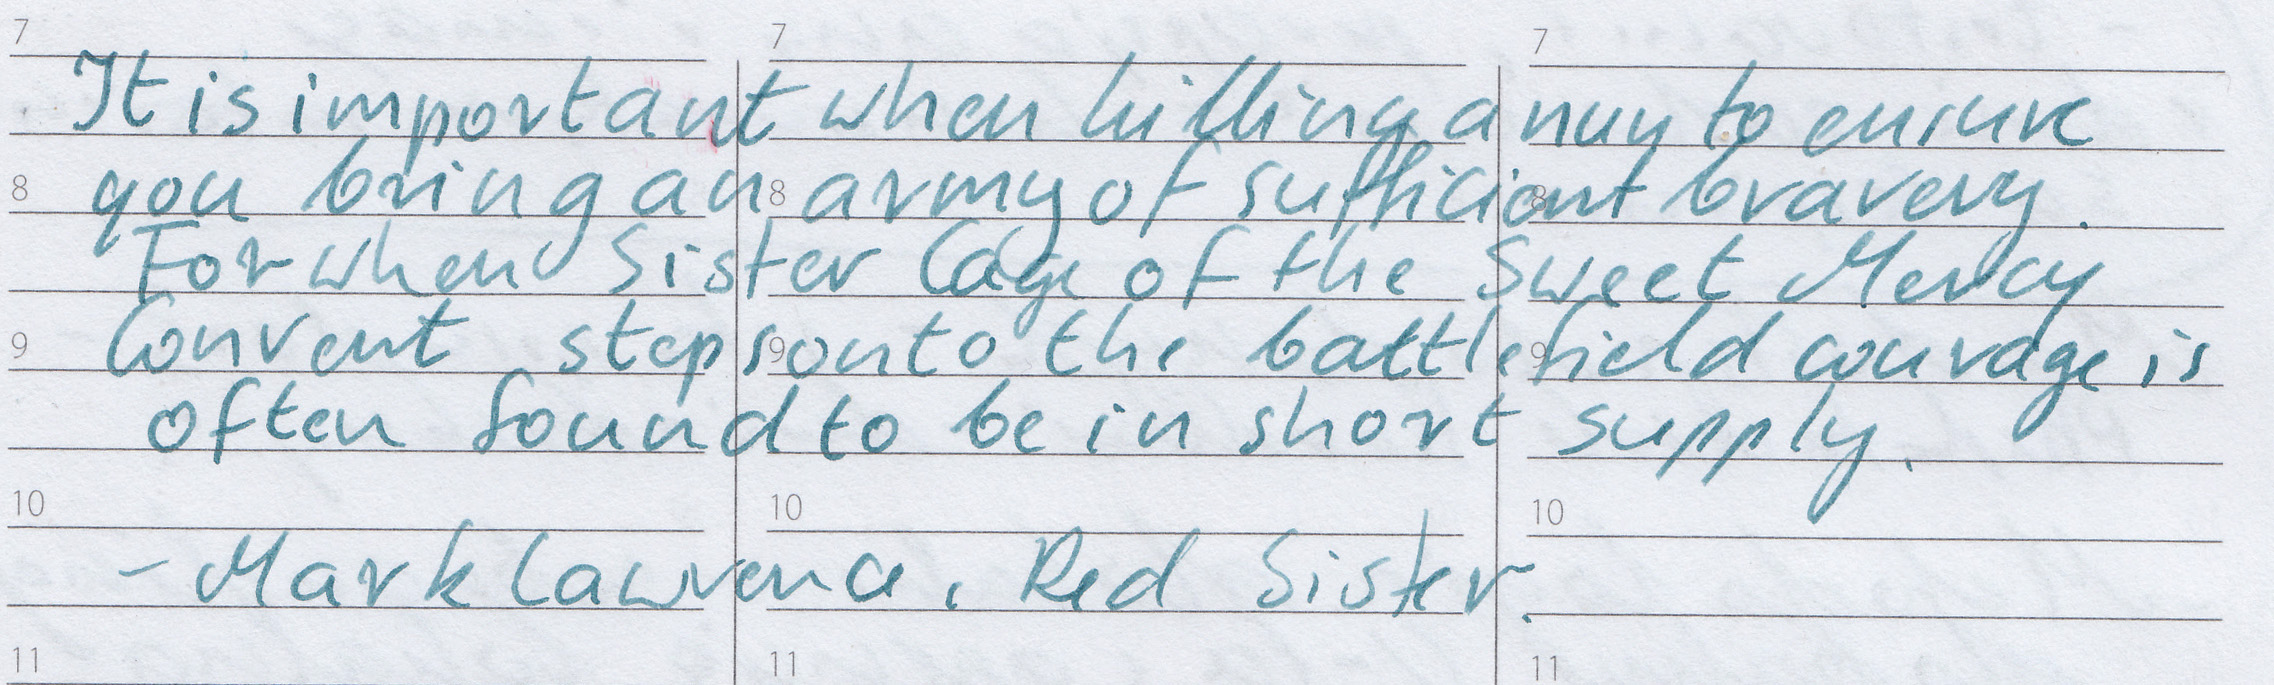 7 7 7
It is important when killing a nun to ensure
8 8 8
you bring an army of sufficient bravery.
For when Sister Cage of the Sweet Mercy
9 9 9
Convent steps onto the battlefield courage is
often found to be in short supply.
10 10 10
- Mark Lawrence, Red Sister.
11 11 11